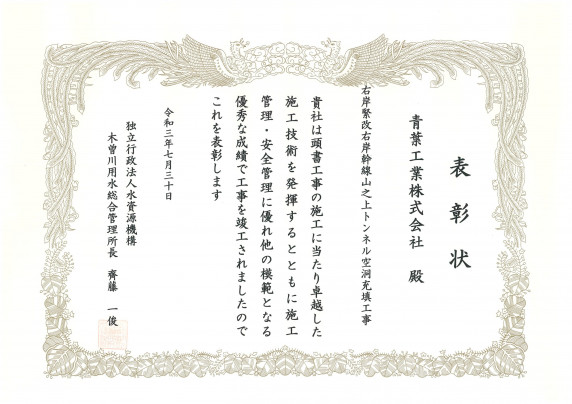 表彰状
青葉工業株式会社 殿
右岸緊改右岸幹線山之上トンネル空洞充填工事
貴社は頭書工事の施工に当たり卓越した
施工技術を発揮するとともに施工
管理・安全管理に優れ他の模範となる
優秀な成績で工事を竣工されましたので
これを表彰します
令和三年七月三十日
独立行政法人水資源機構
木曽川用水総合管理所長 齊藤 一俊